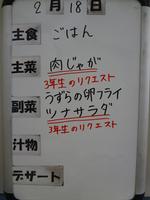 2月18日
主食 ごはん
主菜 肉じゃが
3年生のリクエスト
副菜 うずらの卵フライ
ツナサラダ
3年生のリクエスト
汁物
デザート